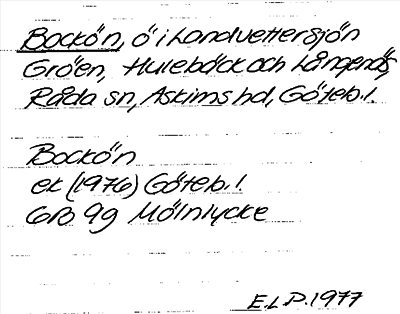 Bockön, ö i Landvettersjön
Gröen, Hulebäck och Långenäs,
Råda sn, Askims hd, Göteb. l.
Bockön
ek (1976) Göteb. l.
6B 9g Mölnlycke
E.L.P. 1977